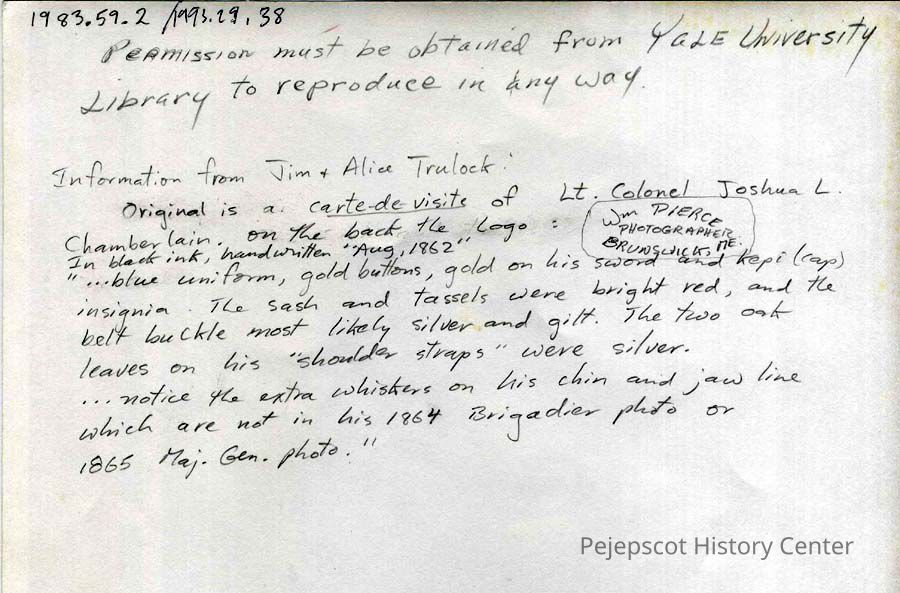 1983.59.2 / 1993.29.38
Permission must be obtained from Yale University
Library to reproduce in any way.
Information from Jim & Alice Trulock:
Original is a carte-de-visite of Lt. Colonel Joshua L.
Chamberlain. On the back the Logo :
Wm PIERCE
PHOTOGRAPHER
BRUNSWICK, ME.
In black ink, handwritten "Aug, 1862"
"...blue uniform, gold buttons, gold on his sword and kepi (cap)
insignia. The sash and tassels were bright red, and the
belt buckle most likely silver and gilt. The two oak
leaves on his "shoulder straps" were silver.
...notice the extra whiskers on his chin and jaw line
which are not in his 1864 Brigadier photo or
1865 Maj. Gen. photo."
Pejepscot History Center